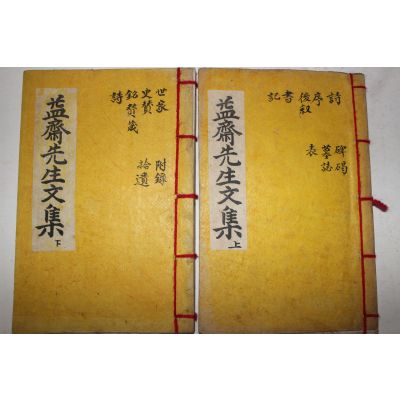 詩
序
後叙
書
記
碑碣
墓誌
表
益齋先生文集 上
世家
史贊
銘贊箴
詩
附錄
拾遺
益齋先生文集 下